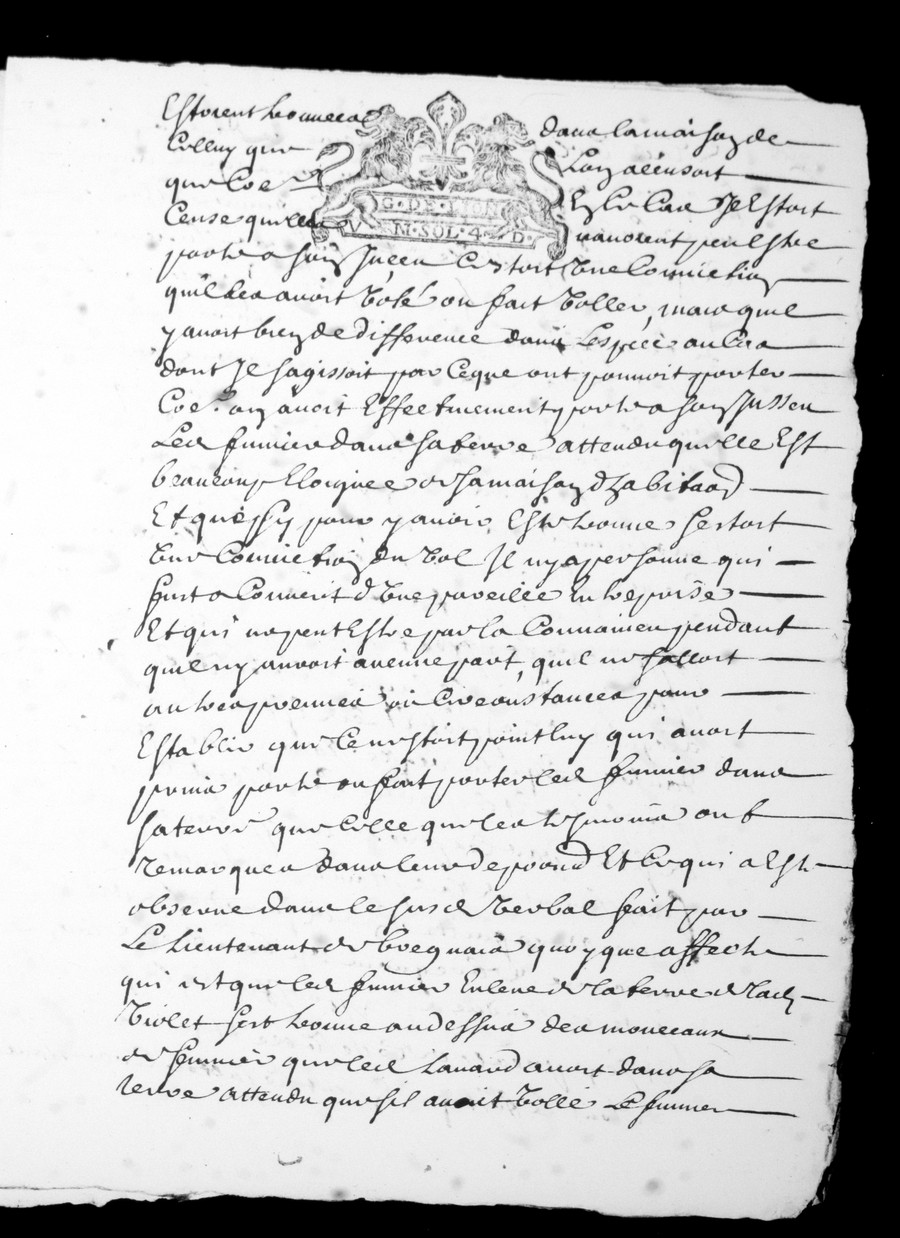 Estoient trouvees dans la maison de
Celluy que Lon accusoit
que Led En ce Cas Il Estoit
Cense quil les auroient peu Estre
porte a son Insceu Cestoit Une Conviction
quil les avoit Volé ou fait Voller, mais quil
y avoit bien de difference dans Lespece au Cas
dont Il sagissoit par Ceque ont pouvoit porter
Et quon avoit Effectivement porte a son Insceu
Led fumier dans sa terre attendu quelle Est
beaucoup Eloignee de sa maison dhabitaon
Et que sy pour y avoir Este trouve sestoit
Une Conviction du Vol Il ny a personne qui
fust a Couvert dUne pareille Entreprise
Et qui ne peut Estre par la Convaincu pendant
quil ny auroit aucune part, quil ne falloit
autres preuves ou Circonstances pour
Establir que Ce nestoit point luy qui avoit
prins porte ou fait porter led fumier dans
sa terre que Celle que les tesmoins ont
remarquer dans leurs depoaond Et Ce qui a Este
observe dans le susd Verbal fait par
Le Lieutenant de bregnais quoyque affecte
qui est que led fumier Enleve de la terre de lad
Violet fust trouve au dessus des monceaux
de fumier que led Lanard avoit dans sa
terre attendu que sil avoit Volle Le fumier
G·DE·LION
V N·SOL·4·D·